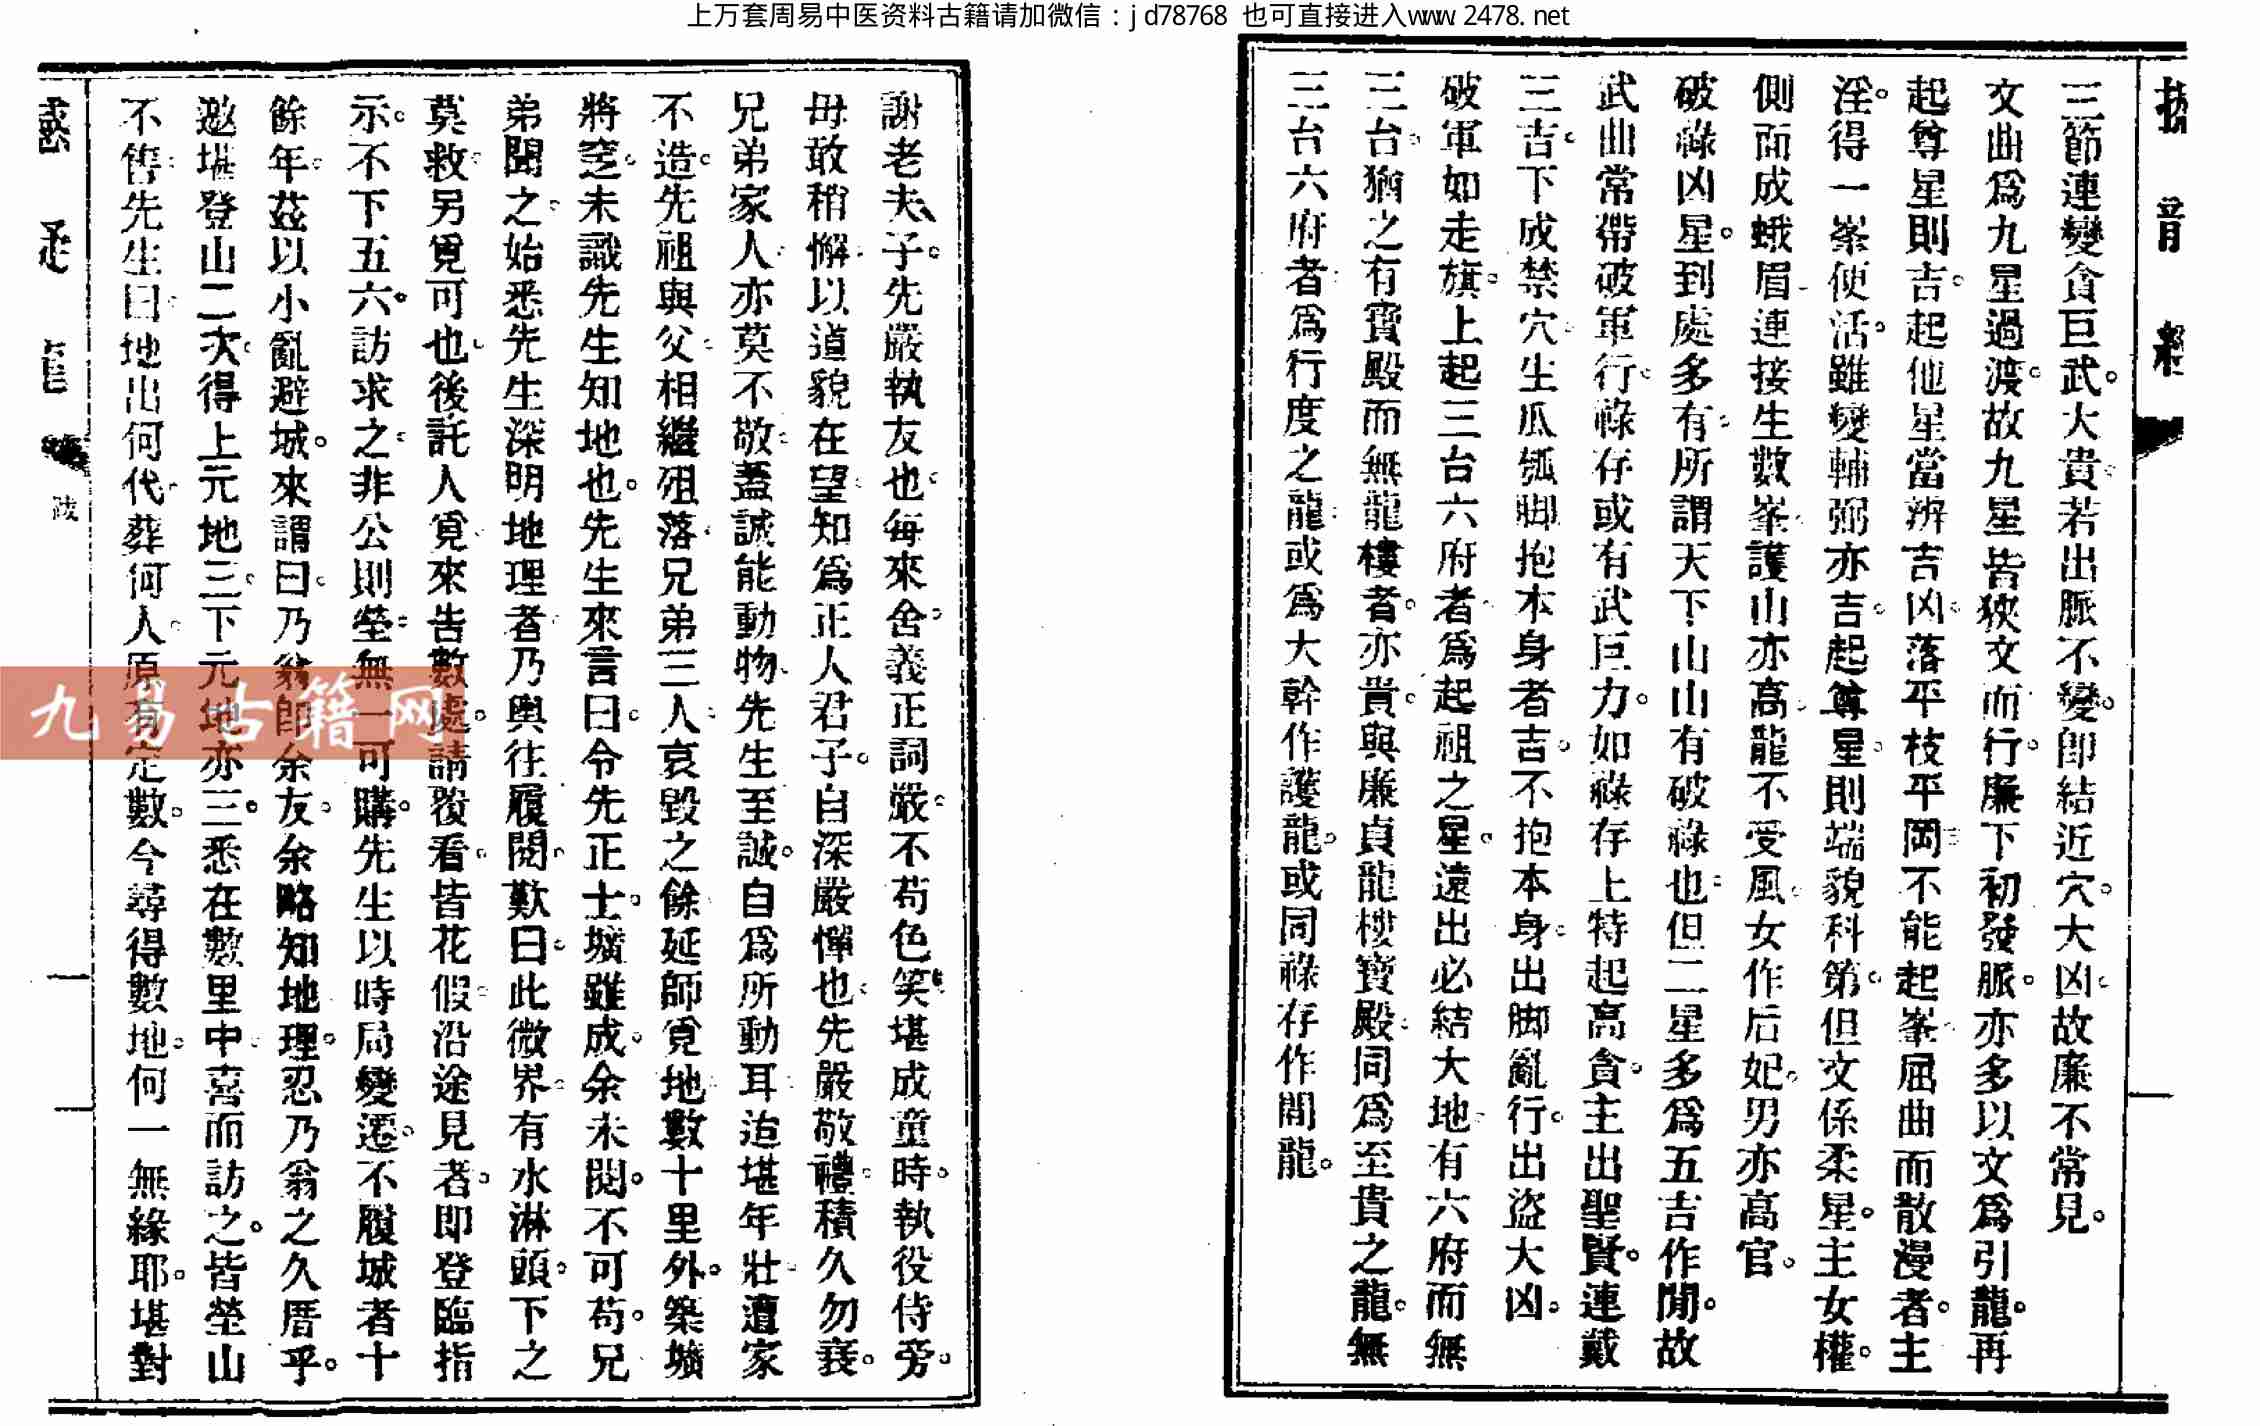 上万套周易中医资料古籍请加微信：jd78768 也可直接进入www.2478.net
三節連變貪巨武。大貴。若出脈不變。卽結近穴。大凶。故廉不常見。
文曲爲九星過渡。故九星皆狹文而行。廉下初發脈。亦多以文爲引龍。再
起尊星則吉。起他星當辨吉凶。落平枝平岡。不能起峯。屈曲而散漫者。主
淫。得一峯便活。雖變輔弼亦吉。起尊星。則端貌科第。但文係柔星。主女權。
側面成蛾眉。連接生數峯。護山亦高。龍不受風。女作后妃。男亦高官。
破祿凶星。到處多有。所謂天下山山有破祿也。但二星多爲五吉作閒。故
武曲常帶破軍行。祿存或有武巨力。如祿存上特起高貪。主出聖賢。連戴
三吉。下成禁穴。生瓜瓠脚抱本身者吉。不抱本身。出脚亂行。出盜大凶。
破軍如走旗。上起三台六府者。爲起祖之星。遠出必結大地。有六府而無
三台。猶之有寶殿而無龍樓者。亦貴。與廉貞龍樓寶殿。同爲至貴之龍。無
三台六府者。爲行度之龍。或爲大幹作護龍。或同祿存作閒龍。
謝老夫子。先嚴執友也。每來舍。義正詞嚴。不苟色笑。堪成童時。執役侍旁。
毋敢稍懈。以道貌在望。知爲正人君子。自深嚴憚也。先嚴敬禮。積久勿衰。
兄弟家人。亦莫不敬。蓋誠能動物。先生至誠。自爲所動耳。迨堪年壯。遭家
不造。先祖與父。相繼殂落。兄弟三人。哀毀之餘。延師覓地。數十里外。築壙
將窆。未識先生知地也。先生來言曰。令先正士。壙雖成。余未閱。不可苟。兄
弟聞之。始悉先生深明地理者。乃輿往履閱。歎曰。此微界。有水淋頭。下之
莫救。另覓可也。後託人覓。來告數處。請覆看。皆花假。沿途見者。即登臨指
示。不下五六。訪求之。非公則塋。無一可購。先生以時局變遷。不履城者十
餘年。茲以小亂避城。來謂曰。乃翁卽余友。余略知地理。忍乃翁之久厝乎。
邀堪登山二次。得上元地三。下元地亦三。悉在數里中。喜而訪之。皆塋山
不售。先生曰。地出何代。葬何人。原有定數。今尋得數地。何一無緣耶。堪對
九易古籍网